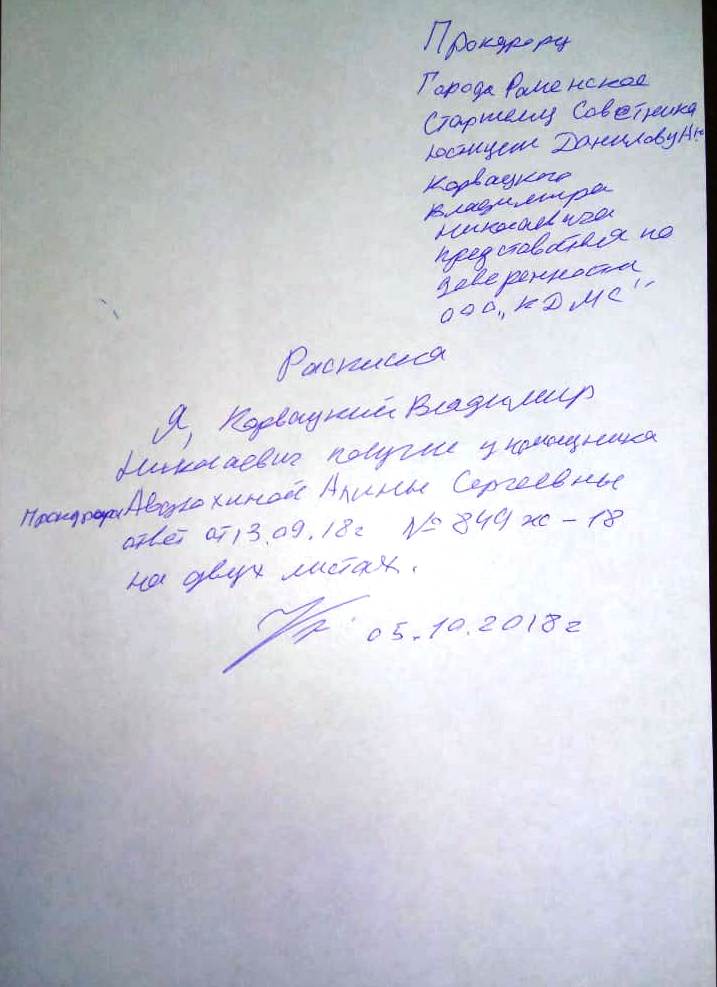 Прокурору
Города Раменское
Старшему Советника
юстиции Данилову Ан
Корвацкого
Владимира
Николаевича
представителя по
доверенности
ООО „КДМС"
Расписка
Я, Корвацкий Владимир
Николаевич получил у помощника
Прокурора Авдрохиной Алины Сергеевны
ответ от 13.09.18г № 849ж-18
на двух листах.
05.10.2018г